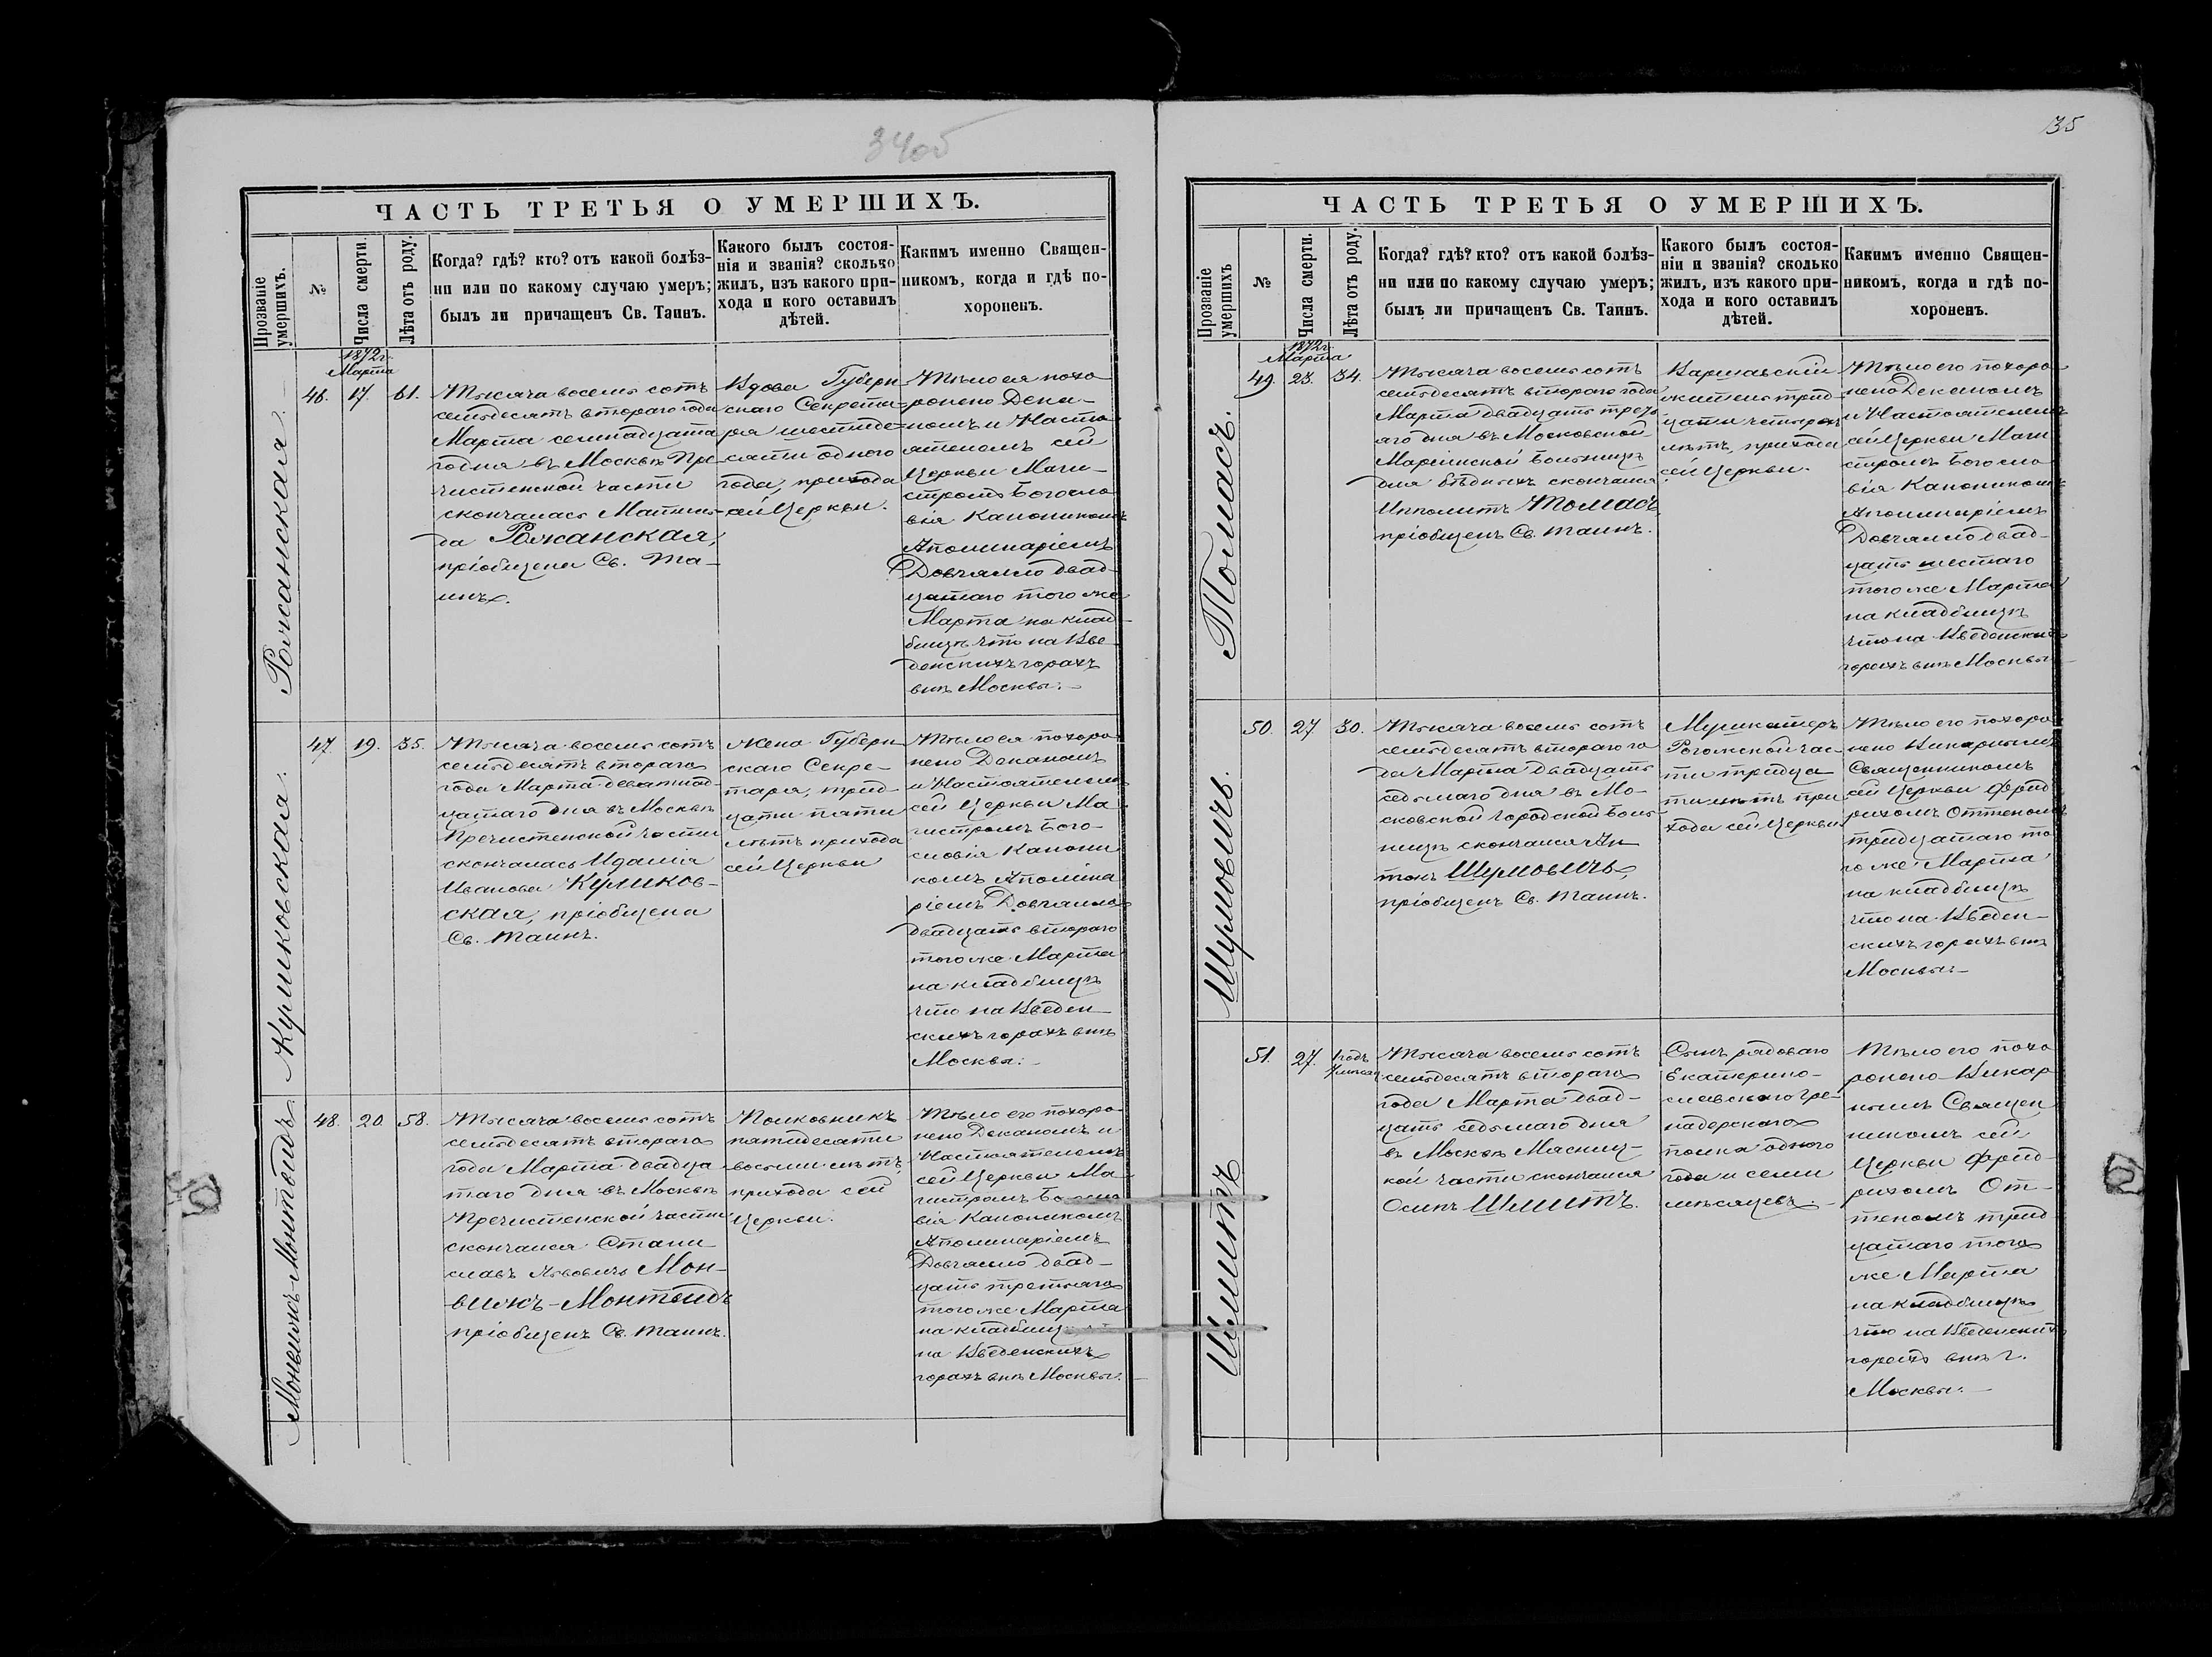 34об
ЧАСТЬ ТРЕТЬЯ О УМЕРШИХЪ.
Прозваніе умершихъ.
№
Числа смерти.
Лѣта отъ роду.
Когда? гдѣ? кто? отъ какой болѣз-
ни или по какому случаю умеръ;
былъ ли причащенъ Св. Таинъ.
Какого былъ состоя-
нія и званія? сколько
жилъ, изъ какого при-
хода и кого оставилъ
дѣтей.
Какимъ именно Священ-
никомъ, когда и гдѣ по-
хороненъ.
1872 г.
Марта
Рожанская.
46.
17.
61.
Тысяча восемь сотъ
семьдесятъ втораго года
Марта семнадцата
го дня въ Москвѣ Пре-
чистенской части
скончалась Матиль-
да Рожанская,
пріобщена Св. Та-
инъ.
Вдова Губерн
скаго Секрета-
ря шестиде-
сяти одного
года, прихода
сей Церкви.
Тѣло ея похо
ронено Дека-
номъ и Насто
ятелемъ сей
Церкви Маги-
стромъ Богосло
вія Каноникомъ
Аполинаріемъ
Довгялло двад-
цатаго того же
Марта на клад-
бищѣ что на Вве-
денскихъ горахъ
внѣ Москвы.
Куликовская.
47.
19.
35.
Тысяча восемь сотъ
семьдесятъ втораго
года Марта девятнад-
цатаго дня въ Москвѣ
Пречистенской части
скончалась Идалія
Иванова Куликов-
ская, пріобщена
Св. Таинъ.
Жена Губерн
скаго Секре-
таря, трид-
цати пяти
лѣтъ прихода
сей Церкви
Тѣло ея похоро
нено Деканомъ
и Настоятелемъ
сей Церкви Ма-
гистромъ Бого-
словія Канони
комъ Аполина
ріемъ Довгялло
двадцать втораго
того же Марта
на кладбищѣ
что на Введен-
скихъ горахъ внѣ
Москвы.
Монвижъ-Монтвидъ
48.
20.
58.
Тысяча восемь сотъ
семьдесятъ втораго
года Марта двадца
таго дня въ Москвѣ
Пречистенской части
скончался Стани
славъ Львовичъ Мон-
вижъ-Монтвидъ
пріобщенъ Св. Таинъ.
Полковникъ
пятидесяти
восьми лѣтъ,
прихода сей
Церкви.
Тѣло его похоро
нено Деканомъ и
Настоятелемъ
сей Церкви Ма-
гистромъ Богосло
вія Каноникомъ
Аполинаріемъ
Довгялло двад-
цать третьяго
того же Марта
на кладбищѣ что
на Введенскихъ
горахъ внѣ Москвы.
35
ЧАСТЬ ТРЕТЬЯ О УМЕРШИХЪ.
Прозваніе умершихъ
№
Числа смерти.
Лѣта отъ роду.
Когда? гдѣ? кто? отъ какой болѣз-
ни или по какому случаю умеръ;
былъ ли причащенъ Св. Таинъ.
Какого былъ состоя-
ніи и званія? сколько
жилъ, изъ какого при-
хода и кого оставилъ
дѣтей.
Какимъ именно Священ-
никомъ, когда и гдѣ по-
хороненъ.
1872 г.
Марта
Томасъ.
49.
23.
34.
Тысяча восемь сотъ
семьдесятъ втораго года
Марта двадцать треть
яго дня въ Московской
Маріинской Больницѣ
для бѣдныхъ скончался
Ипполитъ Томасъ,
пріобщенъ Св. Таинъ.
Варшавскій
житель трид-
цати четырехъ
лѣтъ, прихода
сей Церкви.
Тѣло его похоро
нено Деканомъ
и Настоятелемъ
сей Церкви Маги
стромъ Богосло
вія Каноникомъ
Аполинаріемъ
Довгялло двад-
цать шестаго
того же Марта
на кладбищѣ
что на Введенскихъ
горахъ внѣ Москвы.
Шумовичъ.
50.
27.
30.
Тысяча восемь сотъ
семьдесятъ втораго го
да Марта двадцать
седьмаго дня въ Мо-
сковской Городской Боль
ницѣ скончался Ан
тонъ Шумовичъ,
пріобщенъ Св. Таинъ.
Мушкатеръ
Рогожской час-
ти тридца
ти лѣтъ при
хода сей Церкви
Тѣло его похоро
нено Викарнымъ
Священникомъ
сей Церкви Фрид
рихомъ Оттеномъ
тридцатаго то
го же Марта
на кладбищѣ
что на Введен-
скихъ горахъ внѣ
Москвы.
Шмитъ
51.
27.
1 годъ
7 мѣсяц.
Тысяча восемь сотъ
семьдесятъ втораго
года Марта двад-
цать седьмаго дня
въ Москвѣ Мясниц-
кой части скончался
Осипъ Шмитъ.
Сынъ рядоваго
Екатерино-
славскаго Гре-
надерскаго
полка одного
года и семи
мѣсяцевъ.
Тѣло его похо
ронено Викар
нымъ Священ
никомъ сей
Церкви Фрид-
рихомъ От-
теномъ трид
цатаго того
же Марта
на кладбищѣ
что на Введенскихъ
горахъ внѣ г.
Москвы.